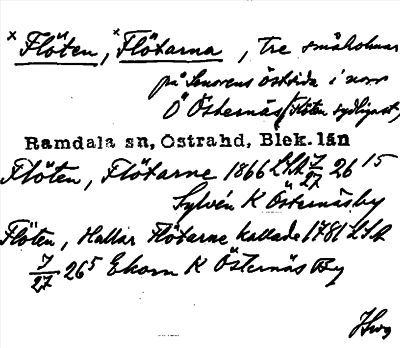 × Flöten, × Flötarna, tre småholmar
på Senorens östsida i norr
Ö Östernäs (Flöten sydligast)
Ramdala sn, Östrahd, Blek. län
Flöten, Flötarne 1866 LSA J/27 26 15
Sylvén K Östernäsby
Flöten, Hallar Flötarne kallade 1781 LSA
J/27 26 5 Ekorn K Östernäs By